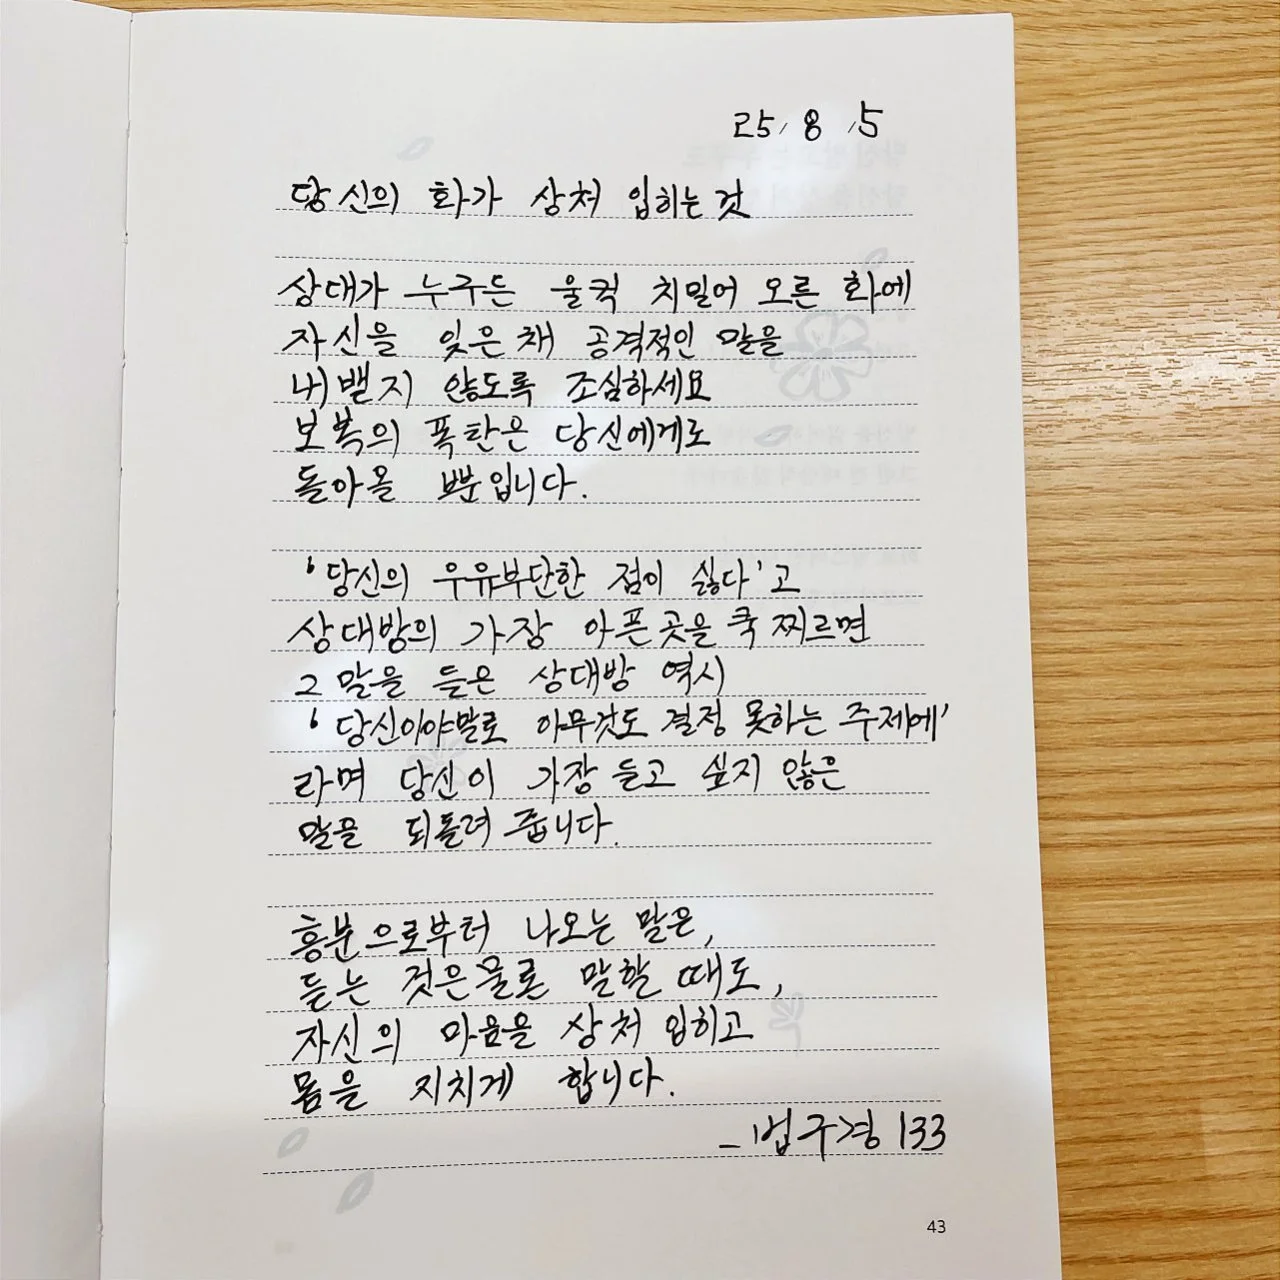 25. 8. 5
당신의 화가 상처 입히는 것
상대가 누구든 울컥 치밀어 오른 화에
자신을 잊은 채 공격적인 말을
내뱉지 않도록 조심하세요
보복의 폭탄은 당신에게로
돌아올 뿐입니다.
'당신의 우유부단한 점이 싫다'고
상대방의 가장 아픈 곳을 쿡 찌르면
그 말을 들은 상대방 역시
'당신이야말로 아무것도 결정 못하는 주제에'
라며 당신이 가장 듣고 싶지 않은
말을 되돌려 줍니다.
흥분으로부터 나오는 말은,
듣는 것은 물론 말할 때도,
자신의 마음을 상처 입히고
몸을 지치게 합니다.
- 법구경 133
43